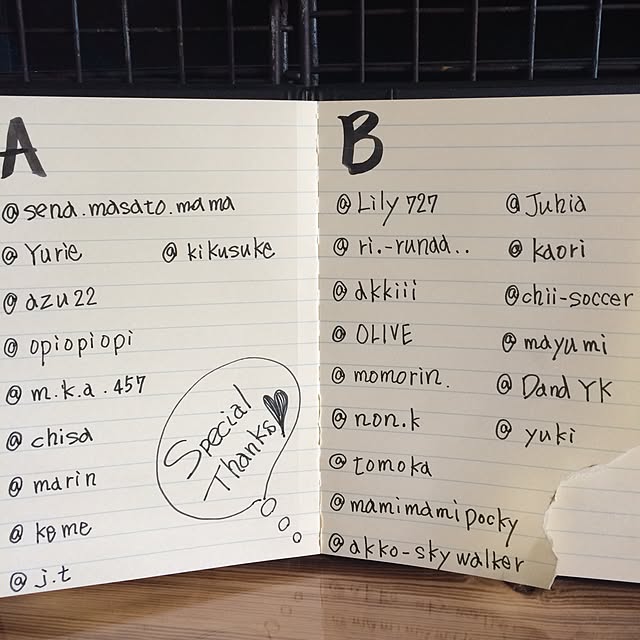 A
@send.masato.mama
@Yurie @kikusuke
@azu22
@opiopiopi
@m.k.a.457
@chisa
@marin
@kome
@j.t
Special
Thanks♥
B
@Lily727 @Juhia
@ri.-runaa.. @kaori
@akkiii @chii-soccer
@OLIVE @mayumi
@momorin. @DandYK
@non.k @yuki
@tomoka
@mamimamipocky
@akko-skywalker